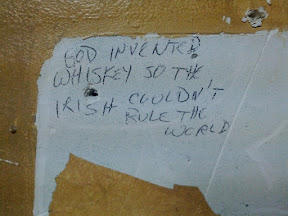 GOD INVENTED
WHISKEY SO THE
IRISH COULDN'T
RULE THE
WORLD